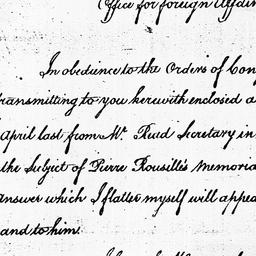 Office for foreign Affair
In obedience to the Orders of Con
transmitting to you herewith enclosed a
April last from Mr. Read Secretary in
the Subject of Pierre Rousille's Memoria
answer which I flatter myself will appea
and to him.